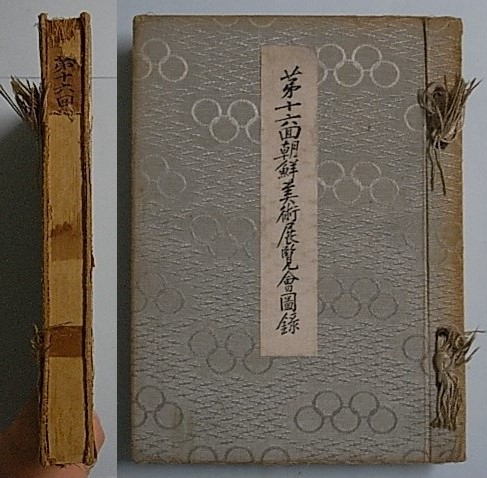 第十六回
第十六回朝鮮美術展覧會圖録